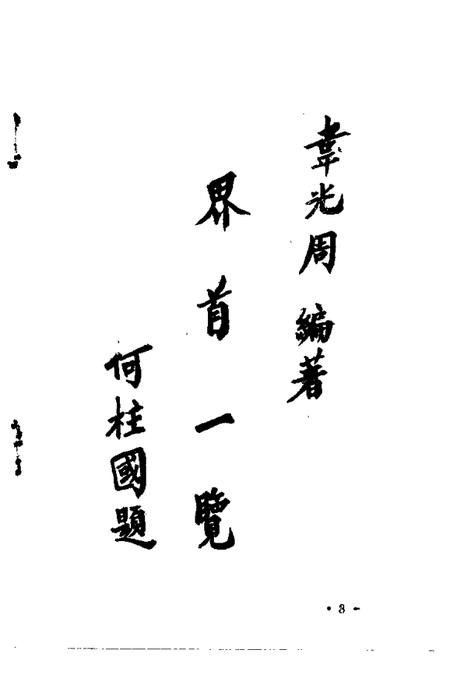 韋光周 編著
界首一覽
何柱國題
·3·